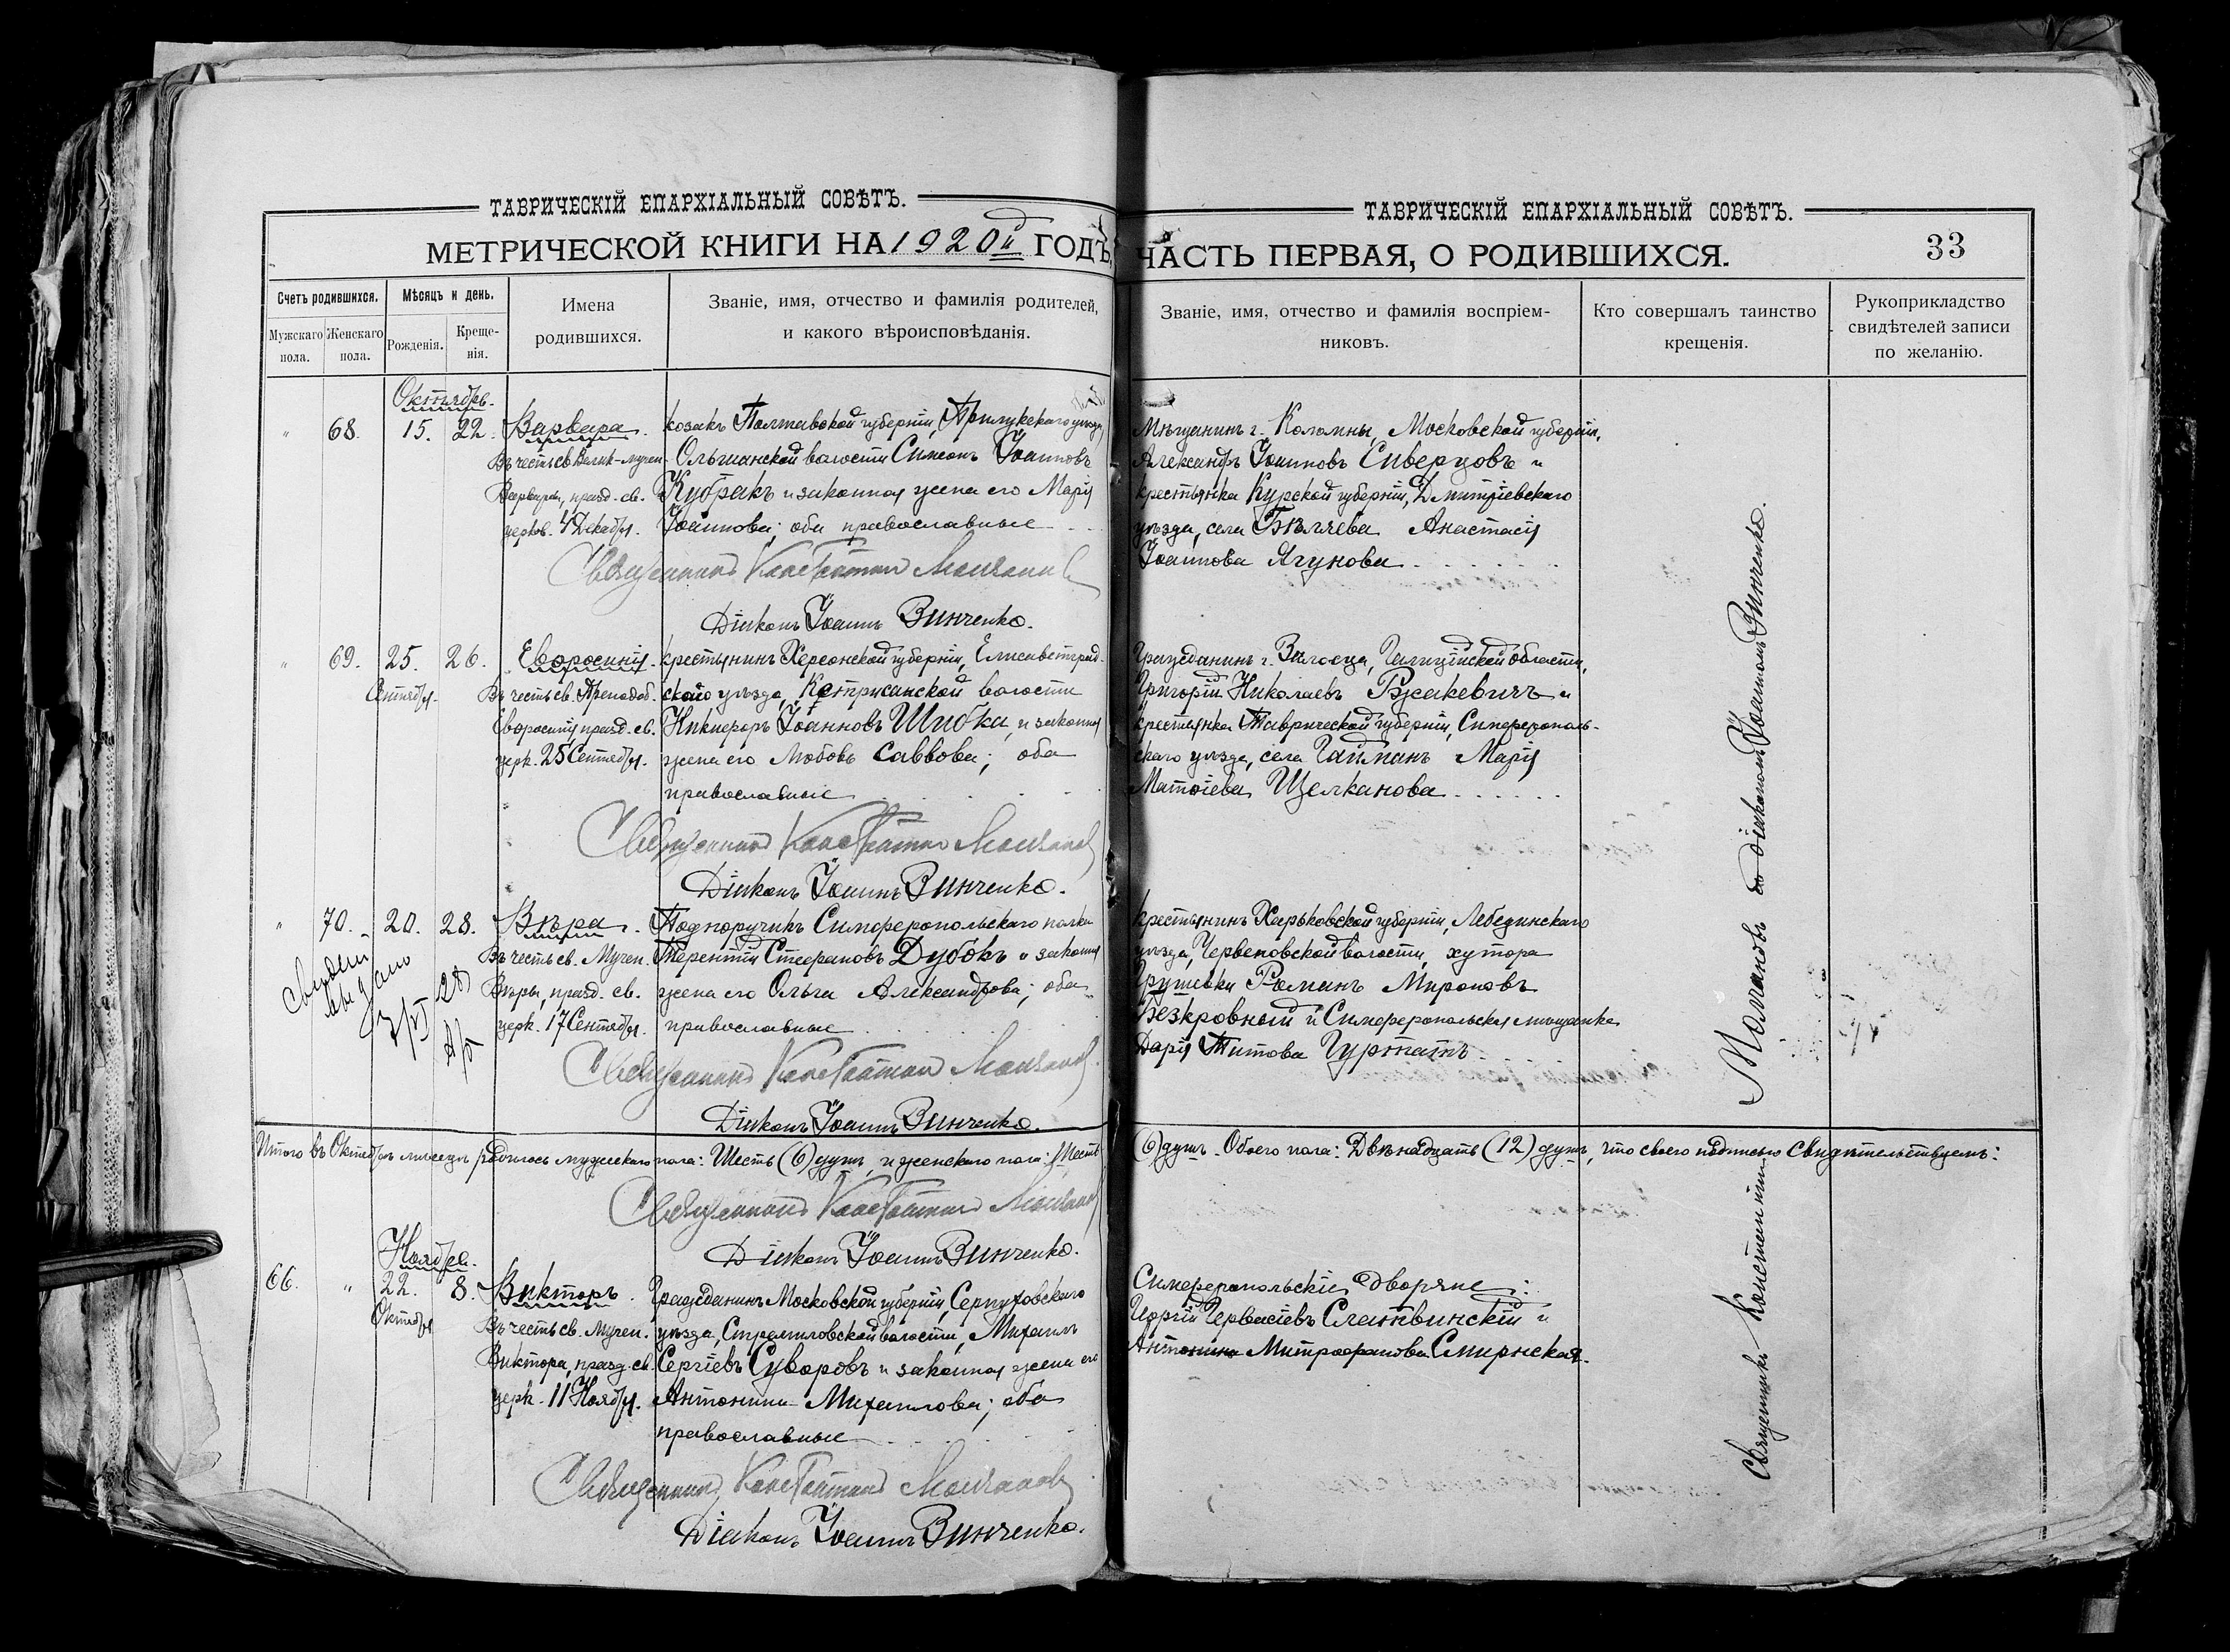 ТАВРИЧЕСКІЙ ЕПАРХІАЛЬНЫЙ СОВѢТЪ.
МЕТРИЧЕСКОЙ КНИГИ НА 1920й ГОДЪ,
Счетъ родившихся.
Мѣсяцъ и день.
Имена родившихся.
Званіе, имя, отчество и фамилія родителей,
и какого вѣроисповѣданія.
Мужскаго пола.
Женскаго пола.
Рожденія.
Крещенія.
Октябрь.
" 68. 15. 22. Варвара. козакъ Полтавской губерніи, Прилукскаго уѣзда,
Въ честь св. Велик-мучен. Ольшанской волости Симеонъ Іоанновъ
Варвары, празд. св. Кубракъ и законная жена его Марія
церков. 4 Декабря. Іоаннова; оба православные
Священникъ Константинъ Молчановъ
Діаконъ Іоаннъ Винченко.
" 69. 25. 26. Евфросинія. крестьянинъ Херсонской губерніи, Елисаветград-
Сентября. Въ честь св. Преподоб. скаго уѣзда, волости
Евфросиніи, празд. св. Никифоръ Іоанновъ Шибка, и законная
церк. 25 Сентября. жена его Любовь Саввова; оба
православные
Священникъ Константинъ Молчановъ
Діаконъ Іоаннъ Винченко.
" 70. 20. 28. Вѣра. Подпоручикъ Симферопольскаго полка
Въ честь св. Мучен. Терентій Стефановъ Дубокъ и законная
Вѣры, празд. св. жена его Ольга Александрова; оба
церк. 17 Сентября. православные
Священникъ Константинъ Молчановъ
Діаконъ Іоаннъ Винченко.
Итого въ Октябрѣ мѣсяцѣ родилось мужескаго пола: Шесть (6) душъ, и женскаго пола: Шесть
Священникъ Константинъ Молчановъ
Діаконъ Іоаннъ Винченко.
Ноябрь.
66. " 22. 8. Викторъ. Гражданинъ Московской губерніи, Серпуховскаго
Октября Въ честь св. Мучен. уѣзда, Стремиловской волости, Михаилъ
Виктора, празд. св. Сергіевъ Суворовъ и законная жена его
церк. 11 Ноября. Антонина Михаилова; оба
православные
Священникъ Константинъ Молчановъ
Діаконъ Іоаннъ Винченко.
ТАВРИЧЕСКІЙ ЕПАРХІАЛЬНЫЙ СОВѢТЪ.
ЧАСТЬ ПЕРВАЯ, О РОДИВШИХСЯ.
33
Званіе, имя, отчество и фамилія воспріем-
никовъ.
Кто совершалъ таинство
крещенія.
Рукоприкладство
свидѣтелей записи
по желанію.
Мѣщанинъ г. Коломны, Московской губерніи,
Александръ Іоанновъ Сиверцовъ и
крестьянка Курской губерніи, Дмитріевскаго
уѣзда, села Бѣляева Анастасія
Іоаннова Ягунова
Гражданинъ г. Залосца, Галиційской области,
Григорій Николаевъ Ржакевичъ и
крестьянка Таврической губерніи, Симферополь-
скаго уѣзда, села Тайманъ Марія
Матѳіева Щелканова
крестьянинъ Харьковской губерніи, Лебединскаго
уѣзда, Червеновской волости, хутора
Грушевки Романъ Мироновъ
Безкровный и Симферопольская мѣщанка
Дарія Титова Гурталь
(6) душъ. Обоего пола: Двѣнадцать (12) душъ, что своею подписью свидѣтельствуемъ:
Симферопольскіе дворяне:
Георгій Гервасіевъ Слатвинскій и
Антонина Митрофанова Смирнская.
Священникъ Константинъ Молчановъ съ діакономъ Іоанномъ Винченко.